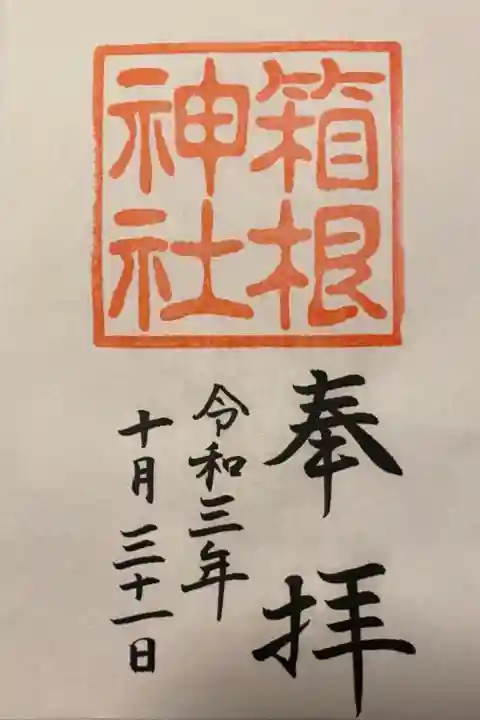 箱根
神社
奉拝
令和三年
十月三十一日